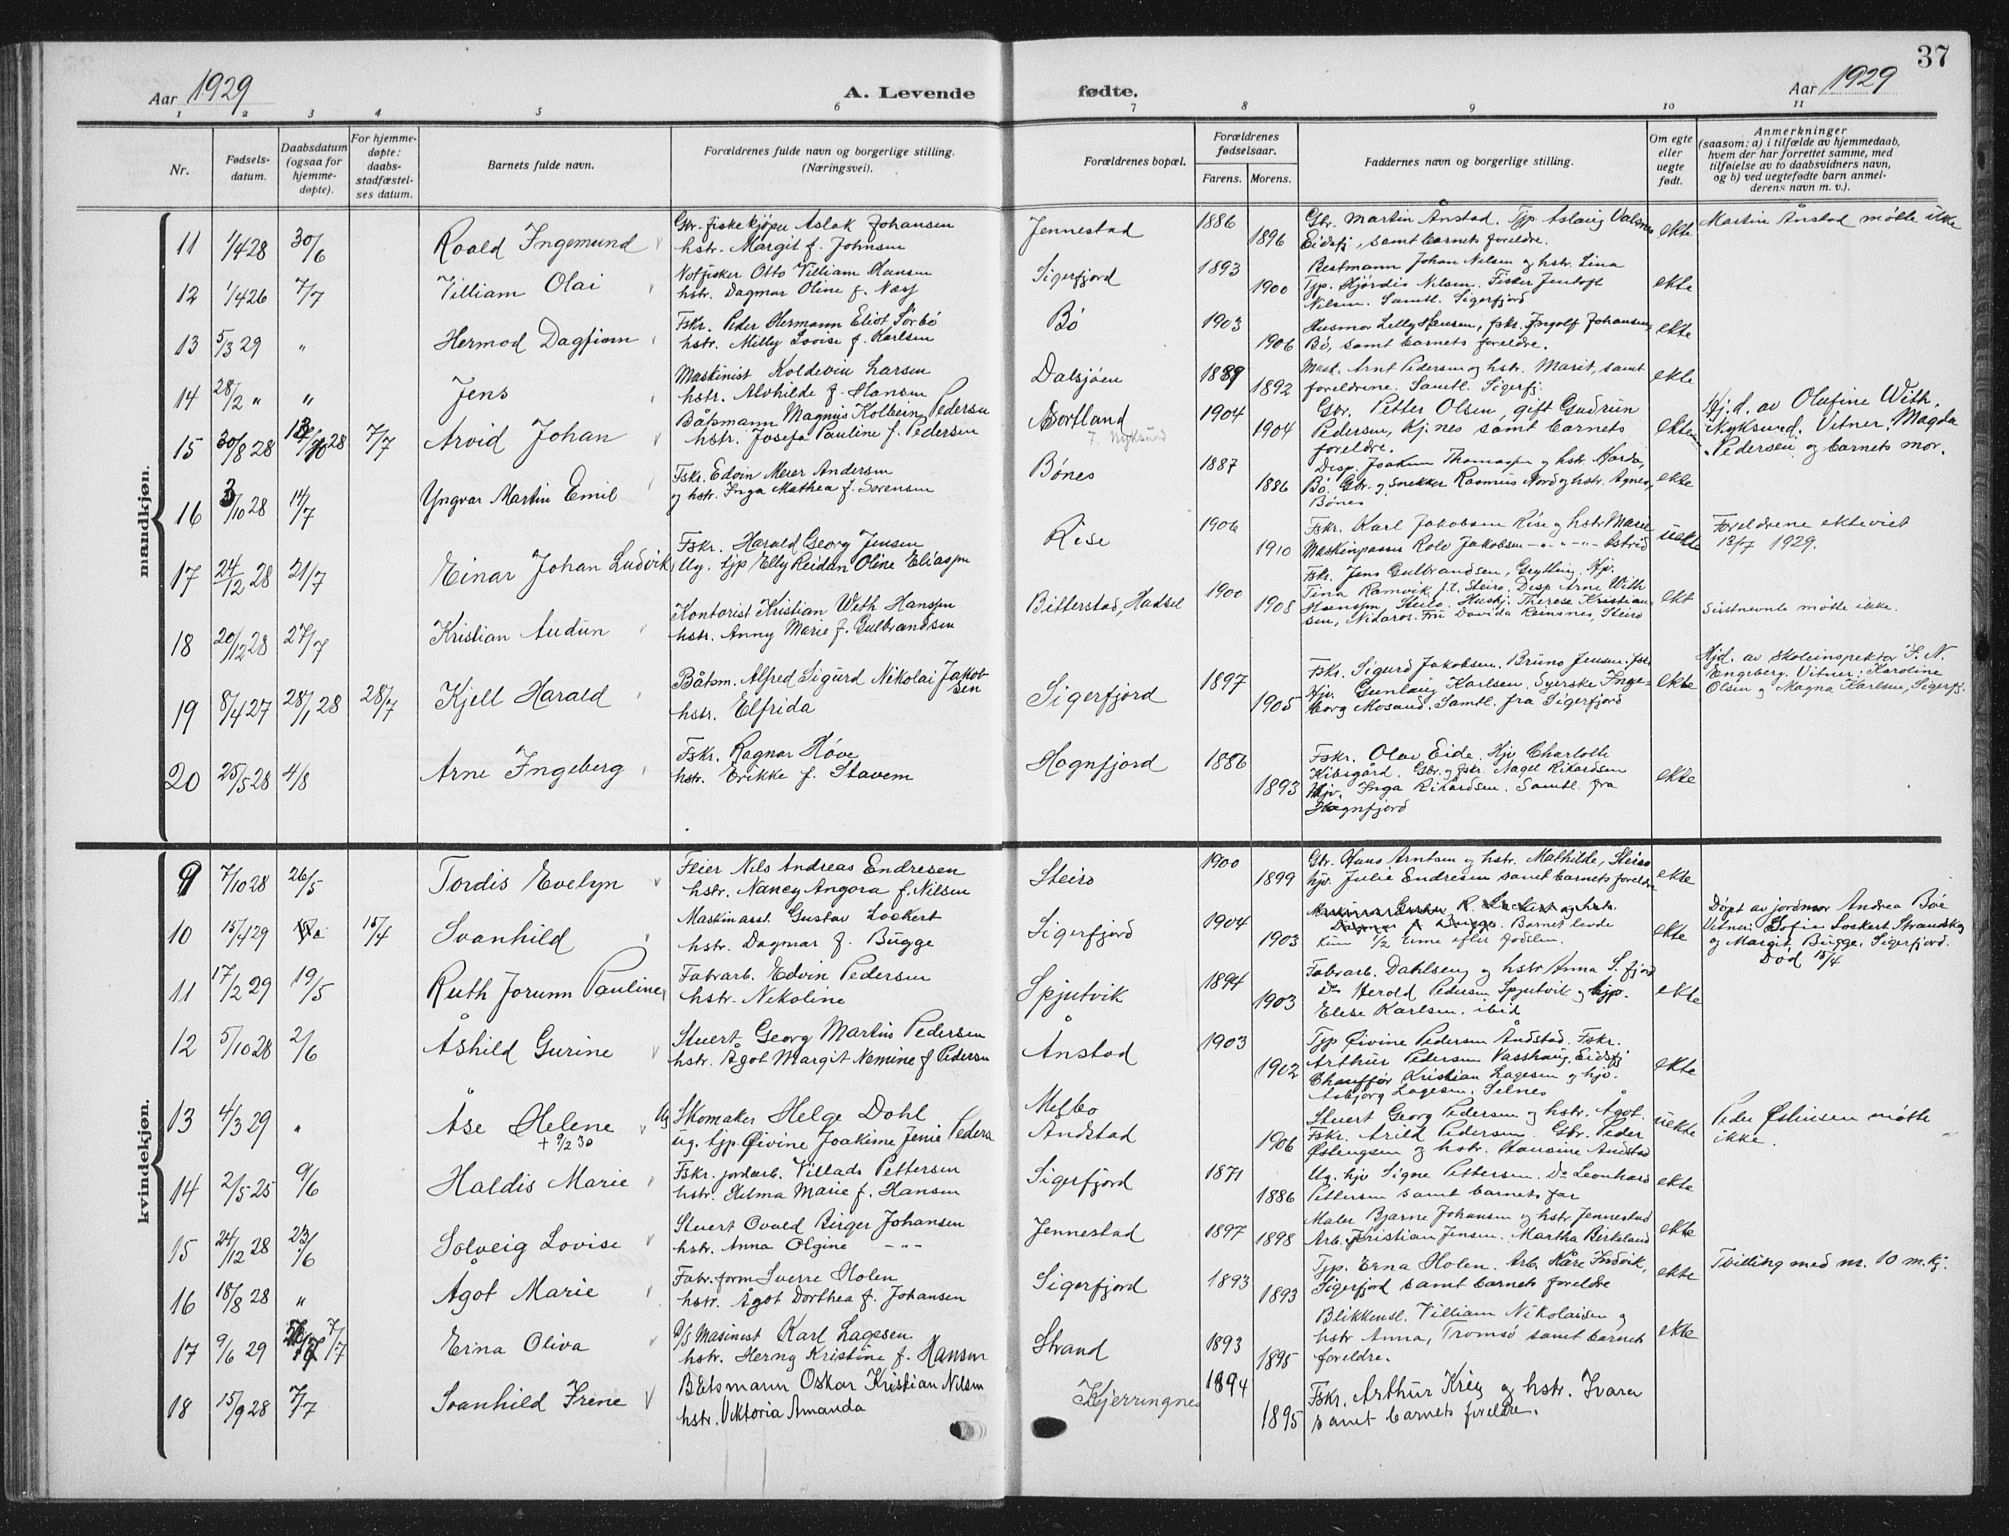 37
Aar 1929
A. Levende fødte.
Aar 1929
1 2 3 4 5 6 7 8 9 10 11
Nr.
Fødsels-datum.
Daabsdatum (ogsaa for hjemme-døpte).
For hjemme-døpte: daabs-stadfæstel-ses datum.
Barnets fulde navn.
Forældrenes fulde navn og borgerlige stilling. (Næringsvei).
Forældrenes bopæl.
Forældrenes fødselsaar.
Farens. Morens.
Faddernes navn og borgerlige stilling.
Om egte eller uegte født.
Anmerkninger
(saasom: a) i tilfælde av hjemmedaab,
hvem der har forrettet samme, med
tilføielse av to daabsvidners navn,
og b) ved uegtefødte barn anmel-
derens navn m. v.).
mandkjøn.
11 1/4 28 30/6 Roald Ingemund
Gbr. fiskekjøper Aslak Johansen
hstr. Margit f. Johnsen
Jennestad 1886 1896
Gbr. Martin Ånstad. Tjp. Aslaug
Eidsfj, samt barnets foreldre.
ekte
Martin Ånstad møtte ikke
12 1/4 26 7/7 Villiam Olai
Notfisker Otto Villiam Hansen
hstr. Dagmar Oline f. Næss
Sigerfjord 1893 1900
Bestmann Johan Nilsen og hstr. Lina
Tjp. Hjørdis Nilsen. Fisker Jentoft
Nilsen. Samtl. Sigerfjord
ekte
13 5/3 29 " Hermod Dagfinn
Fskr. Peder Hermann Eliot Sørbø
hstr. Milly Lovise f. Karlsen
Bø 1903 1906
Husmor Lilly Hansen, fskr. Ingolf Johansen
Bø, samt barnets foreldre.
ekte
14 28/2 " " Jens
Maskinist Koldevin Larsen
hstr. Alvhilde f. Hansen
Dalsjøen 1889 1892
Mask. Arnt Pedersen og hstr. Marit, samt
foreldrene. Samtl. Sigerfj.
ekte
15 30/8 28 28 7/7 Arvid Johan
Båtsmann Magnus Kolbein Pedersen
hstr. Josefa Pauline f. Pedersen
Sortland
f. Nyksund
1904 1904
Gbr. Petter Olsen, gift Gudrun
Pedersen, Kj.nes samt barnets
foreldre.
ekte
Hj.d. av Olufine With.
Nyksund. Vitner. Magda
Pedersen og barnets mor.
16 3/10 28 14/7 Yngvar Martin Emil
Fskr. Edvin Meier Andersen
og hstr. Inga Mathea f. Sørensen
Bønes 1887 1886
Disp. Joakim Thomassen og hstr. Harda,
Bø. Gbr. og Snekker Rasmus Nord og hstr. Agnes,
Bønes
ekte
17 24/12 28 21/7 Einar Johan Ludvik
Fskr. Harald Georg Jensen
Ug. tjp Elly Reidun Oline Eliassen
Rise 1906 1910
Fskr. Karl Jakobsen Rise og hstr. Marie
Maskinpasser Rolv Jakobsen -"- -"- Astrid
uekte
Foreldrene ekteviet
13/7 1929.
18 20/12 28 27/7 Kristian Audun
Kontorist Kristian With Hanssen
hstr. Anny Marie f. Gulbrandsen
Bitterstad, Hadsel 1900 1908
Fskr. Jens Gulbrandsen, Grytting, Hjv.
Tina Ramvik f.t. Steiro, Disp Arne With
Hanssen, Steilo. Huskj. Therese Kristian-
sen, Nidaros. Fru Davida Reinsnes, Steiro
ekt
Sistnevnte møtte ikke.
19 8/4 27 28/1 28 28/7 Kjell Harald
Båtsm. Alfred Sigurd Nikolai Jakob-
sen
hstr. Elfrida
Sigerfjord 1897 1905
Fskr. Sigurd Jakobsen. Bruno Jensen. fskr
Hjv. Gunlaug Karlsen. Syerske Inge-
borg Mosand. Samtl. fra Sigerfjord
ekte
Hjd. av Skoleinspektør S. N.
Engeberg. Vitner: Karoline
Olsen og Magna Karlsen, Sigerfj.
20 25/5 28 4/8 Arne Ingeberg
Fskr. Ragnar Høve
hstr. Erikke f. Stavem
Hognfjord 1886 1893
Fskr. Olav Eide. Hjv Charlotte
Kibsgård. Gbr. og fskr. Nagel Rikardsen
Hjv. Inga Rikardsen. Samtl. fra
Hognfjord
ekte
kvindekjøn.
9 7/10 28 26/5 Tordis Evelyn
Feier Nils Andreas Endresen
hstr. Nancy Angora f. Nilsen
Steiro 1900 1899
Gbr. Hans Arntsen og hstr. Mathilde, Steiro
hjv. Julie Endresen samt barnets foreldre
ekte
10 15/4 29 15/4 Svanhild
Maskinasst. Gustav Lockert
hstr. Dagmar f. Bugge
Sigerfjord 1904 1903
Barnet levde
kun 1/2 time efter fødslen.
ekte
Døpt av jordmor Andrea Bøe
Vitner: Sofie Lockert Strandskog
og Margit Bugge, Sigerfjord.
Død 15/4
11 17/2 29 19/5 Ruth Jorunn Pauline
Fabrarb. Edvin Pedersen
hstr. Nikoline
Spjutvik 1894 1903
Fabrarb. Dahlseng og hstr Anna S. fjord
Do Herold Pedersen Spjutvik og hjp.
Elise Karlsen. ibid
ekte
12 5/10 28 2/6 Åshild Gurine
Stuert Georg Martin Pedersen
hstr. Ågot Margit Nemine f Pedersen
Ånstad 1903 1902
Tjp Øivine Pedersen Åndstad. Fskr.
Arthur Pedersen Vasshaug, Eidsfj
Chauffør Kristian Lagesen og hjv.
Asbjørg Lagesen, Selnes
ekte
13 4/3 29 " Åse Helene
+ 9/2 30
Ug Skomaker Helge Dahl
ug. tjp. Øivine Joakime Jenie Peders
Melbo
Åndstad 1906
Stuert Georg Pedersen og hstr. Ågot.
Fskr. Arild Pedersen. Gbr. Peder
Østengsen og hstr. Hansine Åndstad
uekte
Peder Østensen møtte
ikke.
14 2/5 25 9/6 Haldis Marie
Fskr. jordarb. Villads Pettersen
hstr. Hilma Marie f. Hansen
Sigerfjord 1871 1886
Ug. hjv Signe Pettersen. Do Leonhard
Pettersen samt barnets far
ekte
15 24/12 28 23/6 Solveig Lovise
Stuert Osvald Birger Johansen
hstr. Anna Olgine -"-
Jennestad 1897 1898
Maler Bjarne Johansen og hstr Jennestad
Arb. Kristian Jensen. Martha Birkeland
ekte
16 18/8 28 " Ågot Marie
Fabr.form Sverre Holen
hstr. Ågot Dorthea f. Johansen
Sigerfjord 1893 1893
Tjp. Erna Holen. Arb. Kåre Indvik,
Sigerfjord samt barnets foreldre
ekte
Tvilling med nr. 10 m.kj.
17 9/6 29 7/7 Erna Oliva
D/S Masinist Karl Lagesen
hstr. Herny Kristine f. Hansen
Strand 1893 1895
Blikkensl. Villiam Nikolaisen og
hstr Anna, Tromsø samt barnets
foreldre.
ekte
18 15/9 28 7/7 Svanhild Irene
Båtsmann Oskar Kristian Nilsen
hstr. Viktoria Amanda
Kjerringnes 1894 1895
Fskr. Arthur Krey og hstr. Ivara
samt barnets foreldre.